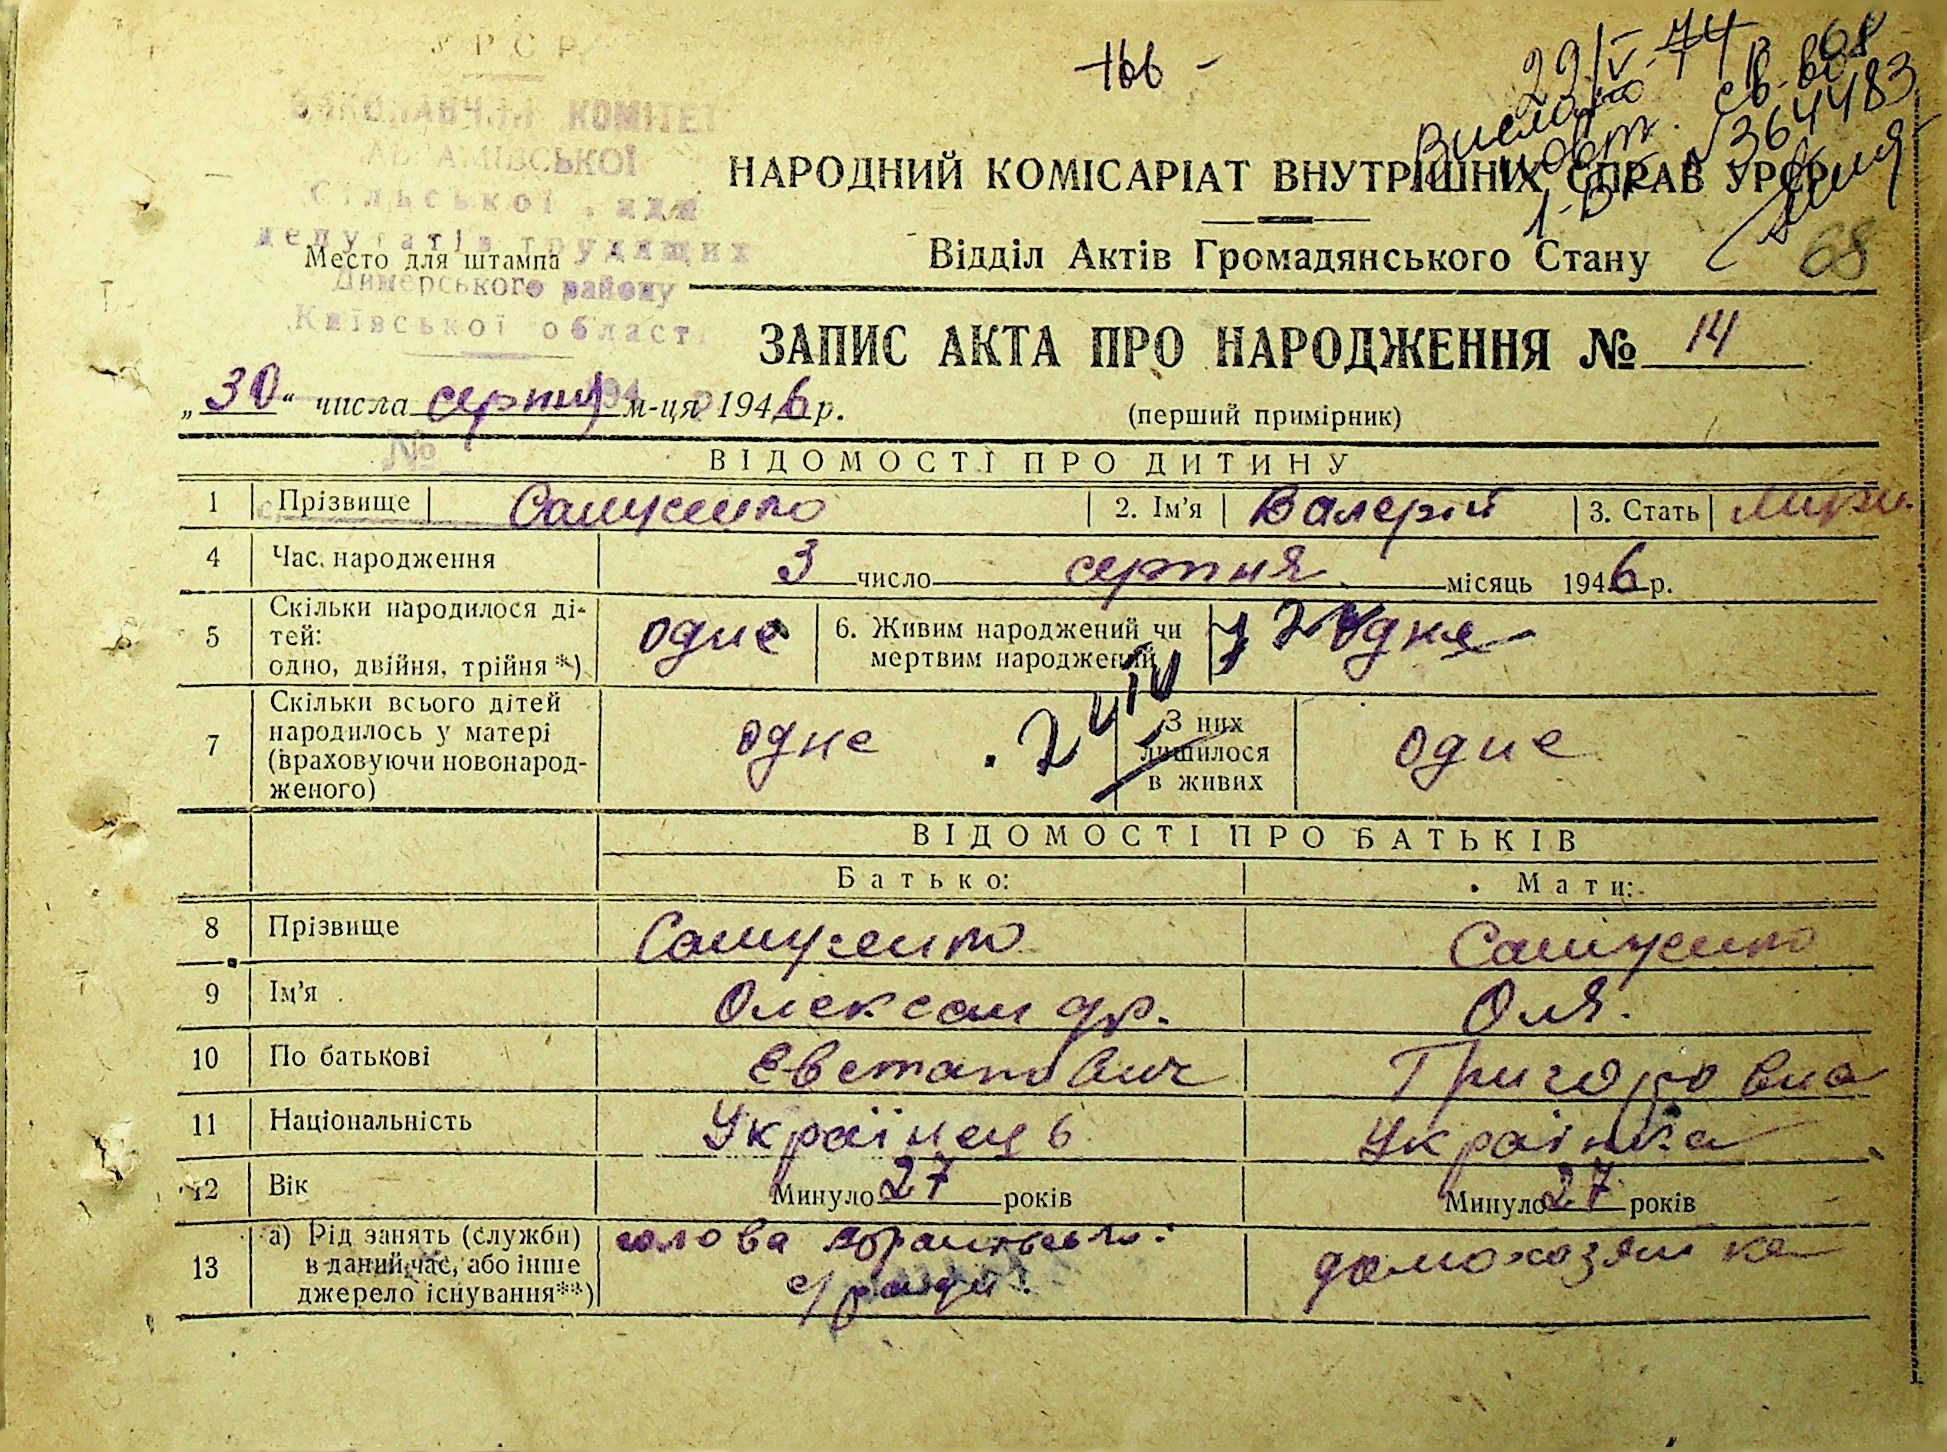 УРСР
ВИКОНАВЧИЙ КОМІТЕТ
АБРАМІВСЬКОЇ
Сільської ради
депутатів трудящих
Димерського району
Київської області
Место для штампа
№
166 -
22/V-74
Вислано повт. св-во
1-БК № 364483
68
НАРОДНИЙ КОМІСАРІАТ ВНУТРІШНІХ СПРАВ УРСР
Відділ Актів Громадянського Стану
ЗАПИС АКТА ПРО НАРОДЖЕННЯ № 14
„30“ числа серпня м-ця 1946 р.
(перший примірник)
ВІДОМОСТІ ПРО ДИТИНУ
1 Прізвище 2. Ім'я Валерій 3. Стать
4 Час народження 3 число серпня місяць 1946 р.
5 Скільки народилося ді-
тей:
одно, двійня, трійня *) одне 6. Живим народжений чи
мертвим народжений
7 Скільки всього дітей
народилось у матері
(враховуючи новонарод-
женого) одне З них
лишилося
в живих одне
ВІДОМОСТІ ПРО БАТЬКІВ
Батько: Мати:
8 Прізвище
9 Ім'я Олександр. Оля.
10 По батькові Евстапович Григоровна
11 Національність Українець Українка
12 Вік Минуло 27 років Минуло 27 років
13 а) Рід занять (служби)
в даний час, або інше
джерело існування**) голова с/ради. домохозяйка